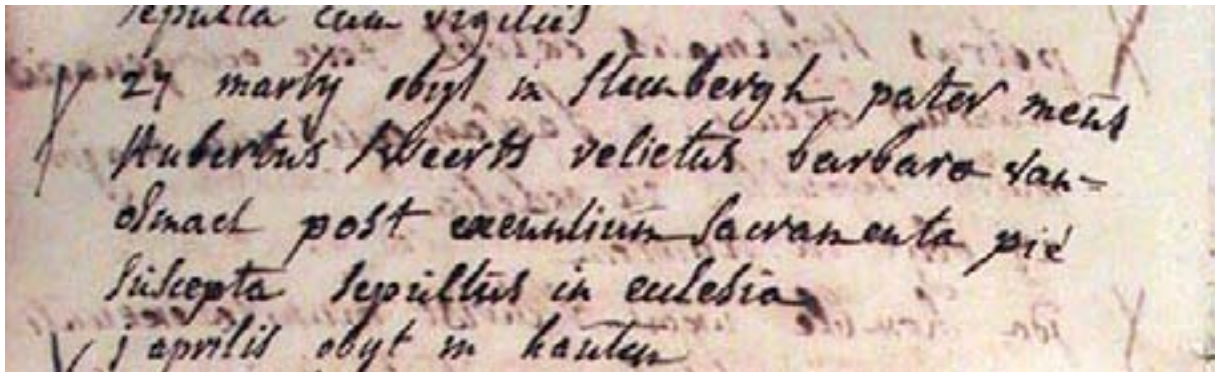 sepulta cum vigiliis
27 martij obijt in Steenbergh pater meus
Hubertus Weerts relictus barbara van=
osmael post exeuntium Sacramenta pié
suscepta sepultus in ecclesia
j aprilis obyt in hautem